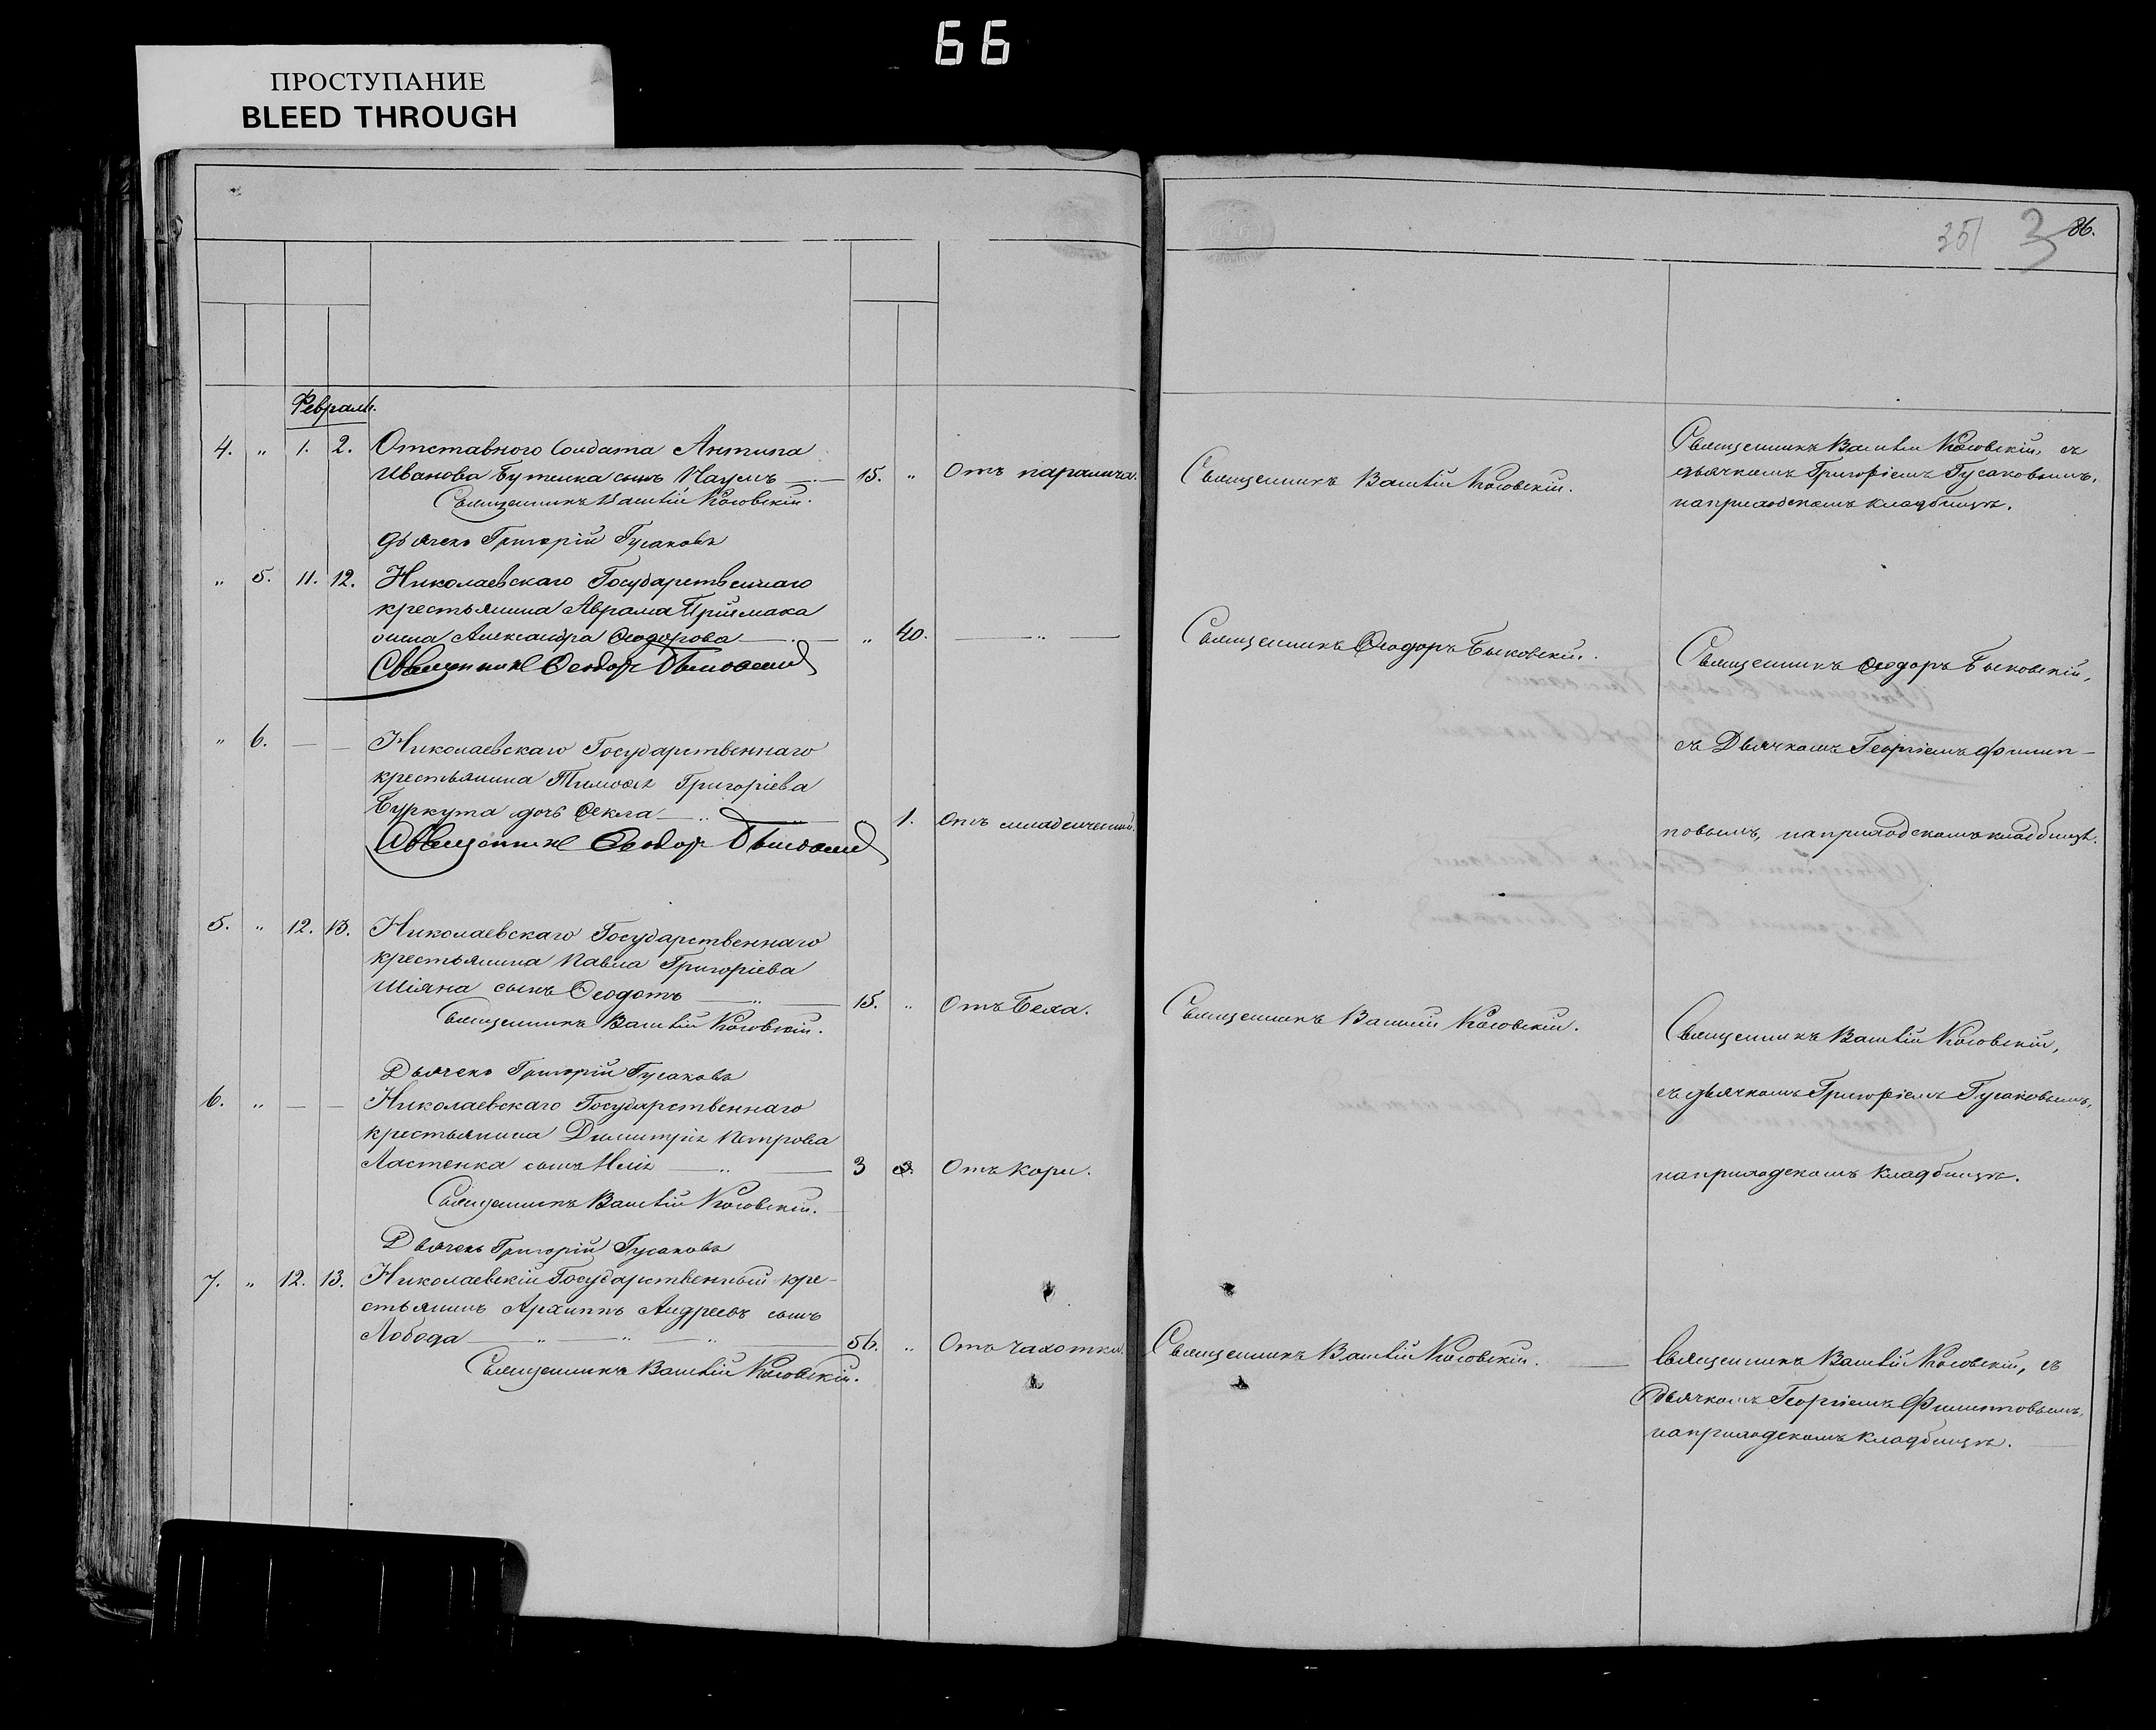 66
ПРОСТУПАНИЕ
BLEED THROUGH
351 3 86.
Февраль.
4. „ 1. 2. Отставного Солдата Антипа
Иванова Бутенка сынъ Наумъ 15. „ Отъ паралича.
Священникъ Василій Косовскій.
Дьячекъ Григорій Гусаковъ
Священникъ Василій Косовскій.
Священникъ Василій Косовскій, съ
дьячкомъ Григоріемъ Гусаковымъ,
на приходскомъ кладбищѣ.
„ 5. 11. 12. Николаевскаго Государственнаго
крестьянина Аврама Приймака
жена Александра Ѳеодорова „ 40. — „ —
Священникъ Ѳеодоръ Быковскій
Священникъ Ѳеодоръ Быковскій.
Священникъ Ѳеодоръ Быковскій,
съ Дьячкомъ Георгіемъ Филип-
повымъ, на приходскомъ кладбищѣ.
„ 6. — — Николаевскаго Государственнаго
крестьянина Тимоѳея Григоріева
Буркута дочь Ѳекла „ 1. Отъ младенческой.
Священникъ Ѳеодоръ Быковскій
5. „ 12. 13. Николаевскаго Государственнаго
крестьянина Павла Григоріева
Шіяна сынъ Ѳеодотъ 15. „ Отъ Беха.
Священникъ Василій Косовскій.
Дьячекъ Григорій Гусаковъ
Священникъ Василій Косовскій.
Священникъ Василій Косовскій,
съ дьячкомъ Григоріемъ Гусаковымъ,
на приходскомъ кладбищѣ.
6. „ — — Николаевскаго Государственнаго
крестьянина Димитрія Петрова
Ластенка сынъ Илія 3 Отъ кори.
Священникъ Василій Косовскій.
Дьячекъ Григорій Гусаковъ
7. „ 12. 13. Николаевскій Государственный кре-
стьянинъ Архиппъ Андреевъ сынъ
Лобода 56. „ Отъ чахотки.
Священникъ Василій Косовскій.
Священникъ Василій Косовскій.
Священникъ Василій Косовскій, съ
Дьячкомъ Георгіемъ Филипповымъ,
на приходскомъ кладбищѣ.